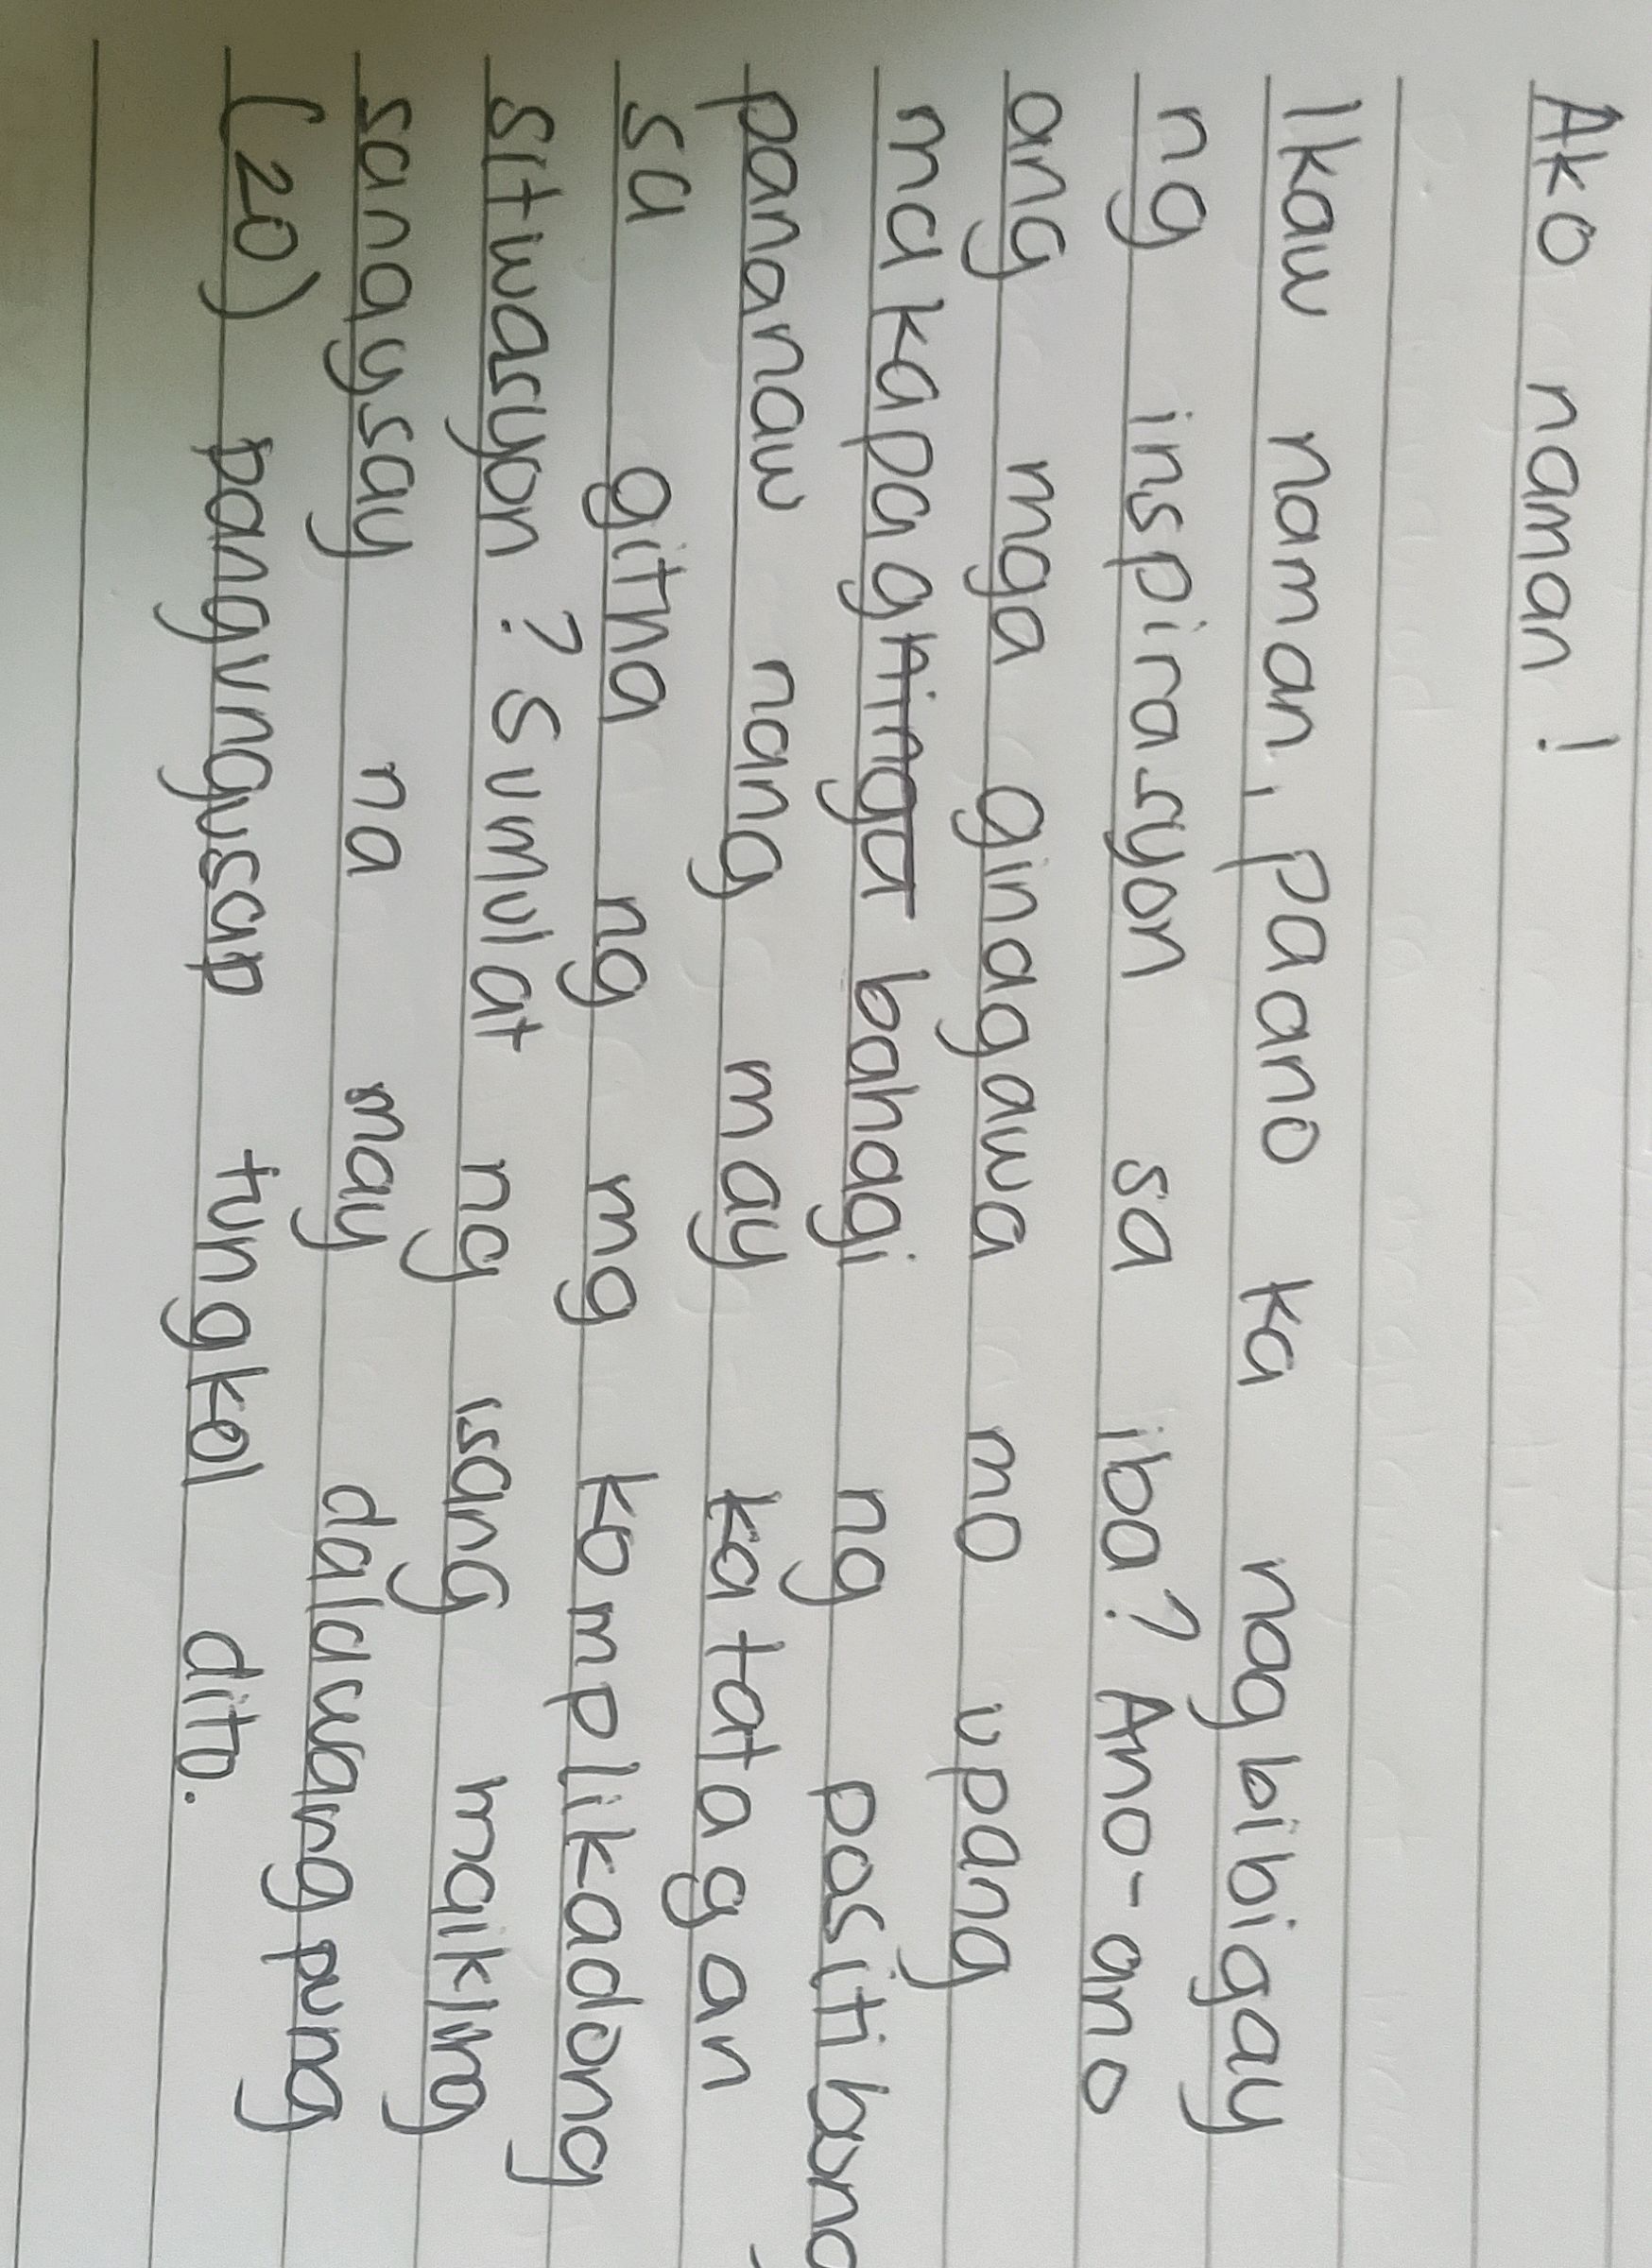 Ako naman!
Ikaw naman, paano ka nagbibigay
ng inspirasyon sa iba? Ano-ano
ang mga ginagawa mo upang
makapag bahagi ng positibong
pananaw nang may katatagan
sa gitna ng mg komplikadong
sitwasyon? Sumulat ng isang maikling
sanaysay na may dalawangpung
(20) pangungusap tungkol dito.